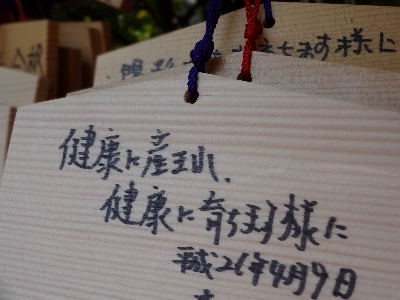 ちます様に
健康に産まれ、
健康に育ちます様に
平成26年4月9日